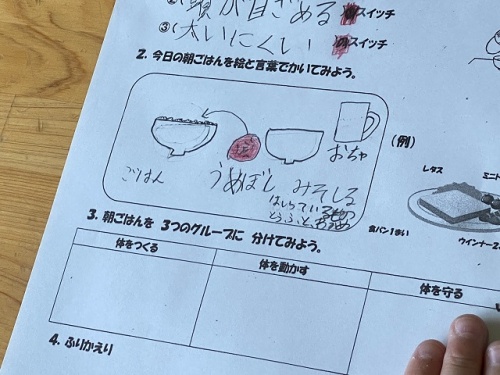 頭が目ざめる
スイッチ
③
スイッチ
2. 今日の朝ごはんを絵と言葉でかいてみよう。
(例)
おちゃ
ごはん
うめぼし
みそしる
はいっているもの
とうふと、わかめ
レタス
ミニト
食パン1まい
ウインナー2
3. 朝ごはんを 3つのグループに 分けてみよう。
体をつくる
体を動かす
体を守る
4. ふりかえり